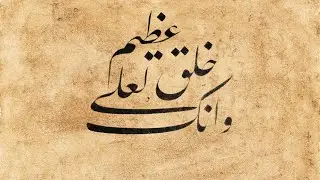 وانك لعلى
خلق عظیم